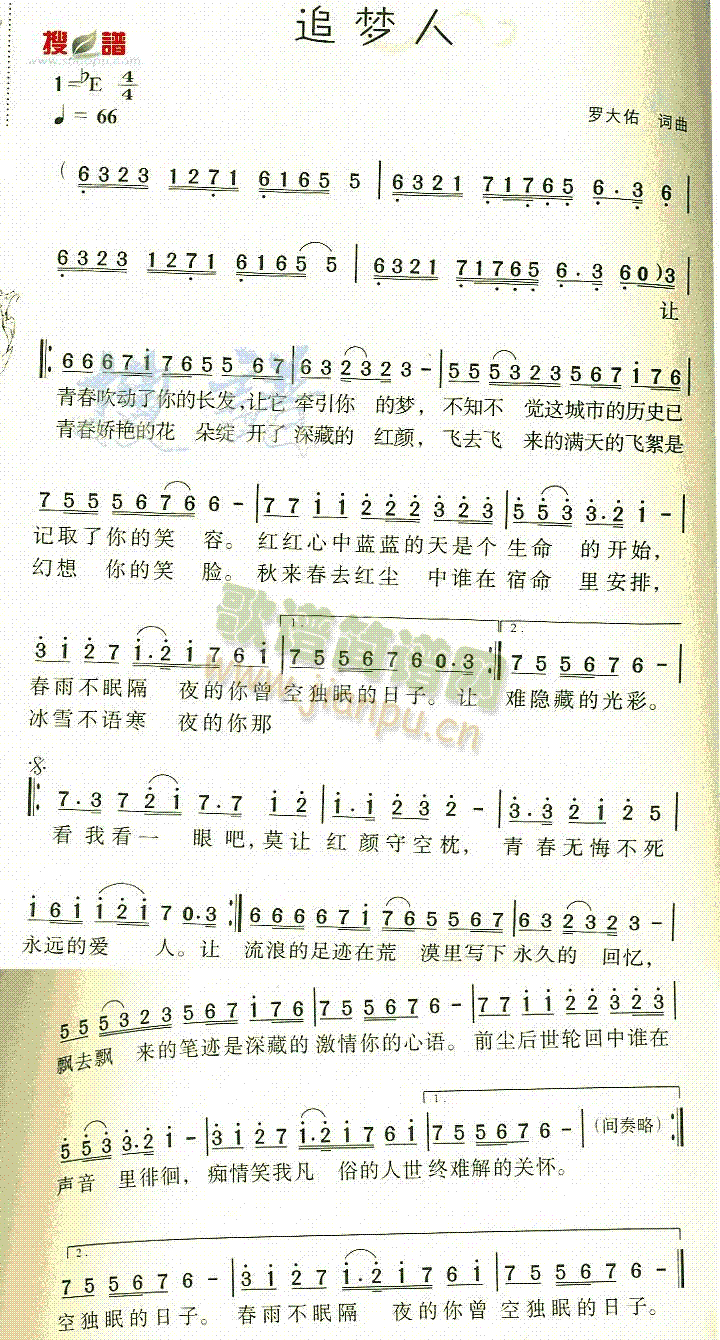 追梦人
搜谱
1=♭E 4/4
♩= 66
罗大佑 词曲
( 6323 1271 6165 5 | 6321 71765 6.3 6 |
6323 1271 6165 5 | 6321 71765 6.3 60)3 |
让
6667176555 67 | 6323323- | 55532356717 6 |
青春吹动了你的长发,让它 牵引你 的梦, 不知不 觉这城市的历史已
青春娇艳的花 朵绽 开了 深藏的 红颜, 飞去飞 来的满天的飞絮是
7 5 5 5 6 7 6 6 - | 7 7 i i 2 2 2 3 2 3 | 5 5 3 3.2 i - |
记取了你的笑 容。 红红心中蓝蓝的天是个 生命 的开始,
幻想 你的笑 脸。 秋来春去红尘 中谁在 宿命 里安排,
歌谱简谱网
www.jianpu.cn
1.
2.
3 i 2 7 i.2 i 7 6 i | 7 5 5 6 7 6 0.3 :| 7 5 5 6 7 6 - |
春雨不眠隔 夜的你曾 空独眠的日子。 让 难隐藏的光彩。
冰雪不语寒 夜的你那
7.3 7 2 i 7.7 i 2 | i.i 2 3 2 - | 3.3 2 i 2 5 |
看 我 看 一 眼 吧, 莫 让 红 颜 守 空 枕, 青 春 无 悔 不 死
i 6 i i 2 i 7 0.3 :| 6 6 6 6 7 i 7 6 5 5 6 7 | 6 3 2 3 2 3 - |
永远的爱 人。让 流浪的足迹在荒 漠里写下 永久的 回忆,
5 5 5 3 2 3 5 6 7 i 7 6 | 7 5 5 6 7 6 - | 7 7 i i 2 2 3 2 3 |
飘去飘 来的笔迹是深藏的 激情你的心语。 前尘后世轮回中谁在
1.
5 5 3 3.2 i - | 3 i 2 7 i.2 i 7 6 i | 7 5 5 6 7 6 - | (间奏略) :|
声音 里徘徊, 痴情笑我凡 俗的人世 终难解的关怀。
2.
7 5 5 6 7 6 - | 3 i 2 7 i.2 i 7 6 i | 7 5 5 6 7 6 - |
空独眠的日子。 春雨不眠隔 夜的你曾 空独眠的日子。